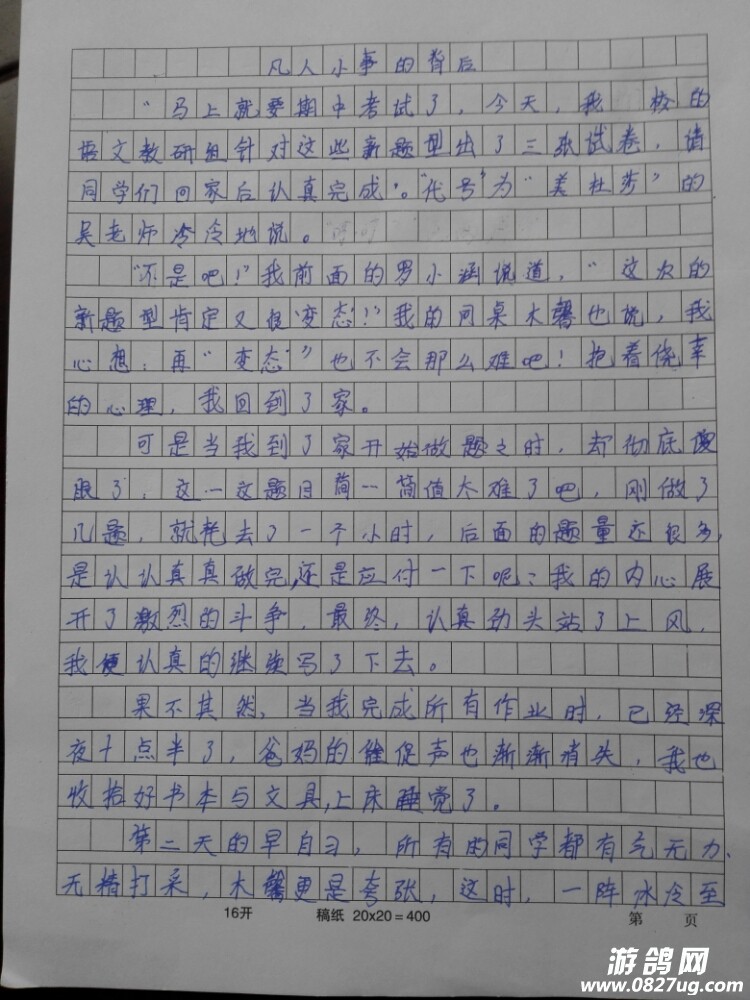 凡人小事的背后
“马上就要期中考试了，今天，我 校的
语文教研组针对这些新题型出了三张试卷，请
同学们回家后认真完成。”“代号”为“美杜莎”的
吴老师冷冷地说。
“不是吧！”我前面的罗小涵说道，“这次的
新题型肯定又很‘变态’！”我的同桌木馨也说，我
心想：再“变态”也不会那么难吧！抱着侥幸
的心理，我回到了家。
可是当我到了家开始做题之时，却彻底傻
眼了，这一这题目简一简值太难了吧，刚做了
几题，就耗去了一个小时，后面的题量还很多，
是认认真真做完，还是应付一下呢？我的内心展
开了激烈的斗争，最终，认真劲头站了上风，
我便认真的继续写了下去。
果不其然，当我完成所有作业时，已经深
夜十点半了，爸妈的催促声也渐渐消失，我也
收拾好书本与文具，上床睡觉了。
第二天的早自习，所有的同学都有气无力，
无精打采，木馨更是夸张，这时，一阵冰冷至
16开 稿纸 20x20=400 第 页
游鸽网
www.0827ug.com